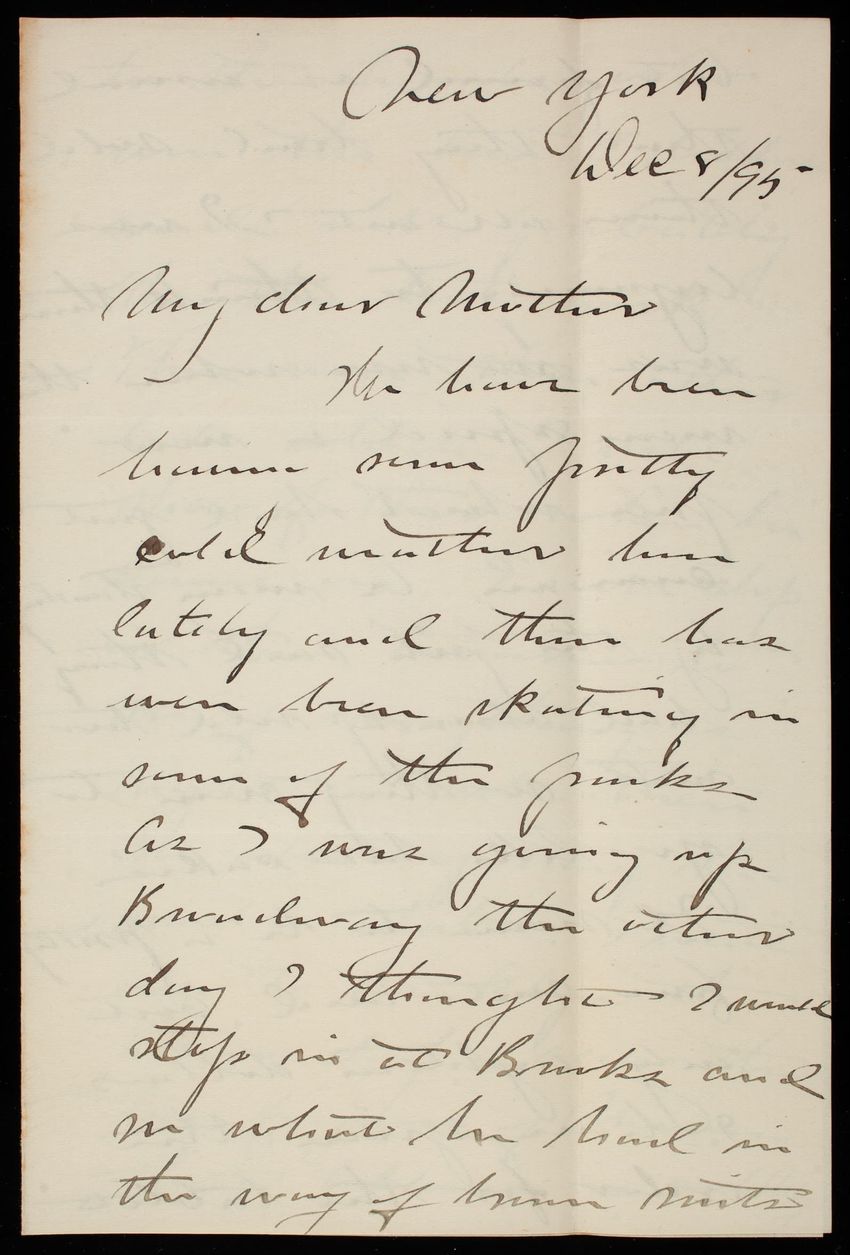 New York
Dec 8/95
My dear Mother
We have been
having some pretty
cold weather here
lately and there has
even been skating in
some of the parks
As I was going up
Broadway the other
day I thought I would
stop in at Brooks and
see what he had in
the way of brown suits